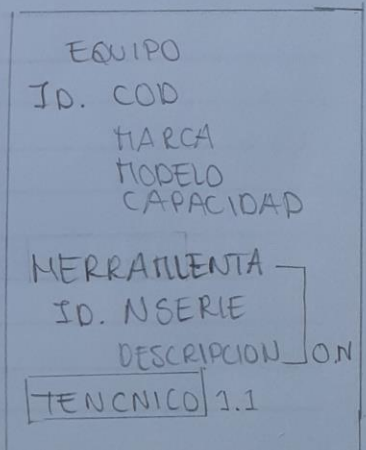 EQUIPO
ID. COD
MARCA
MODELO
CAPACIDAD
HERRAMIENTA
ID. NSERIE
DESCRIPCION O.N
TENCNICO 1.1